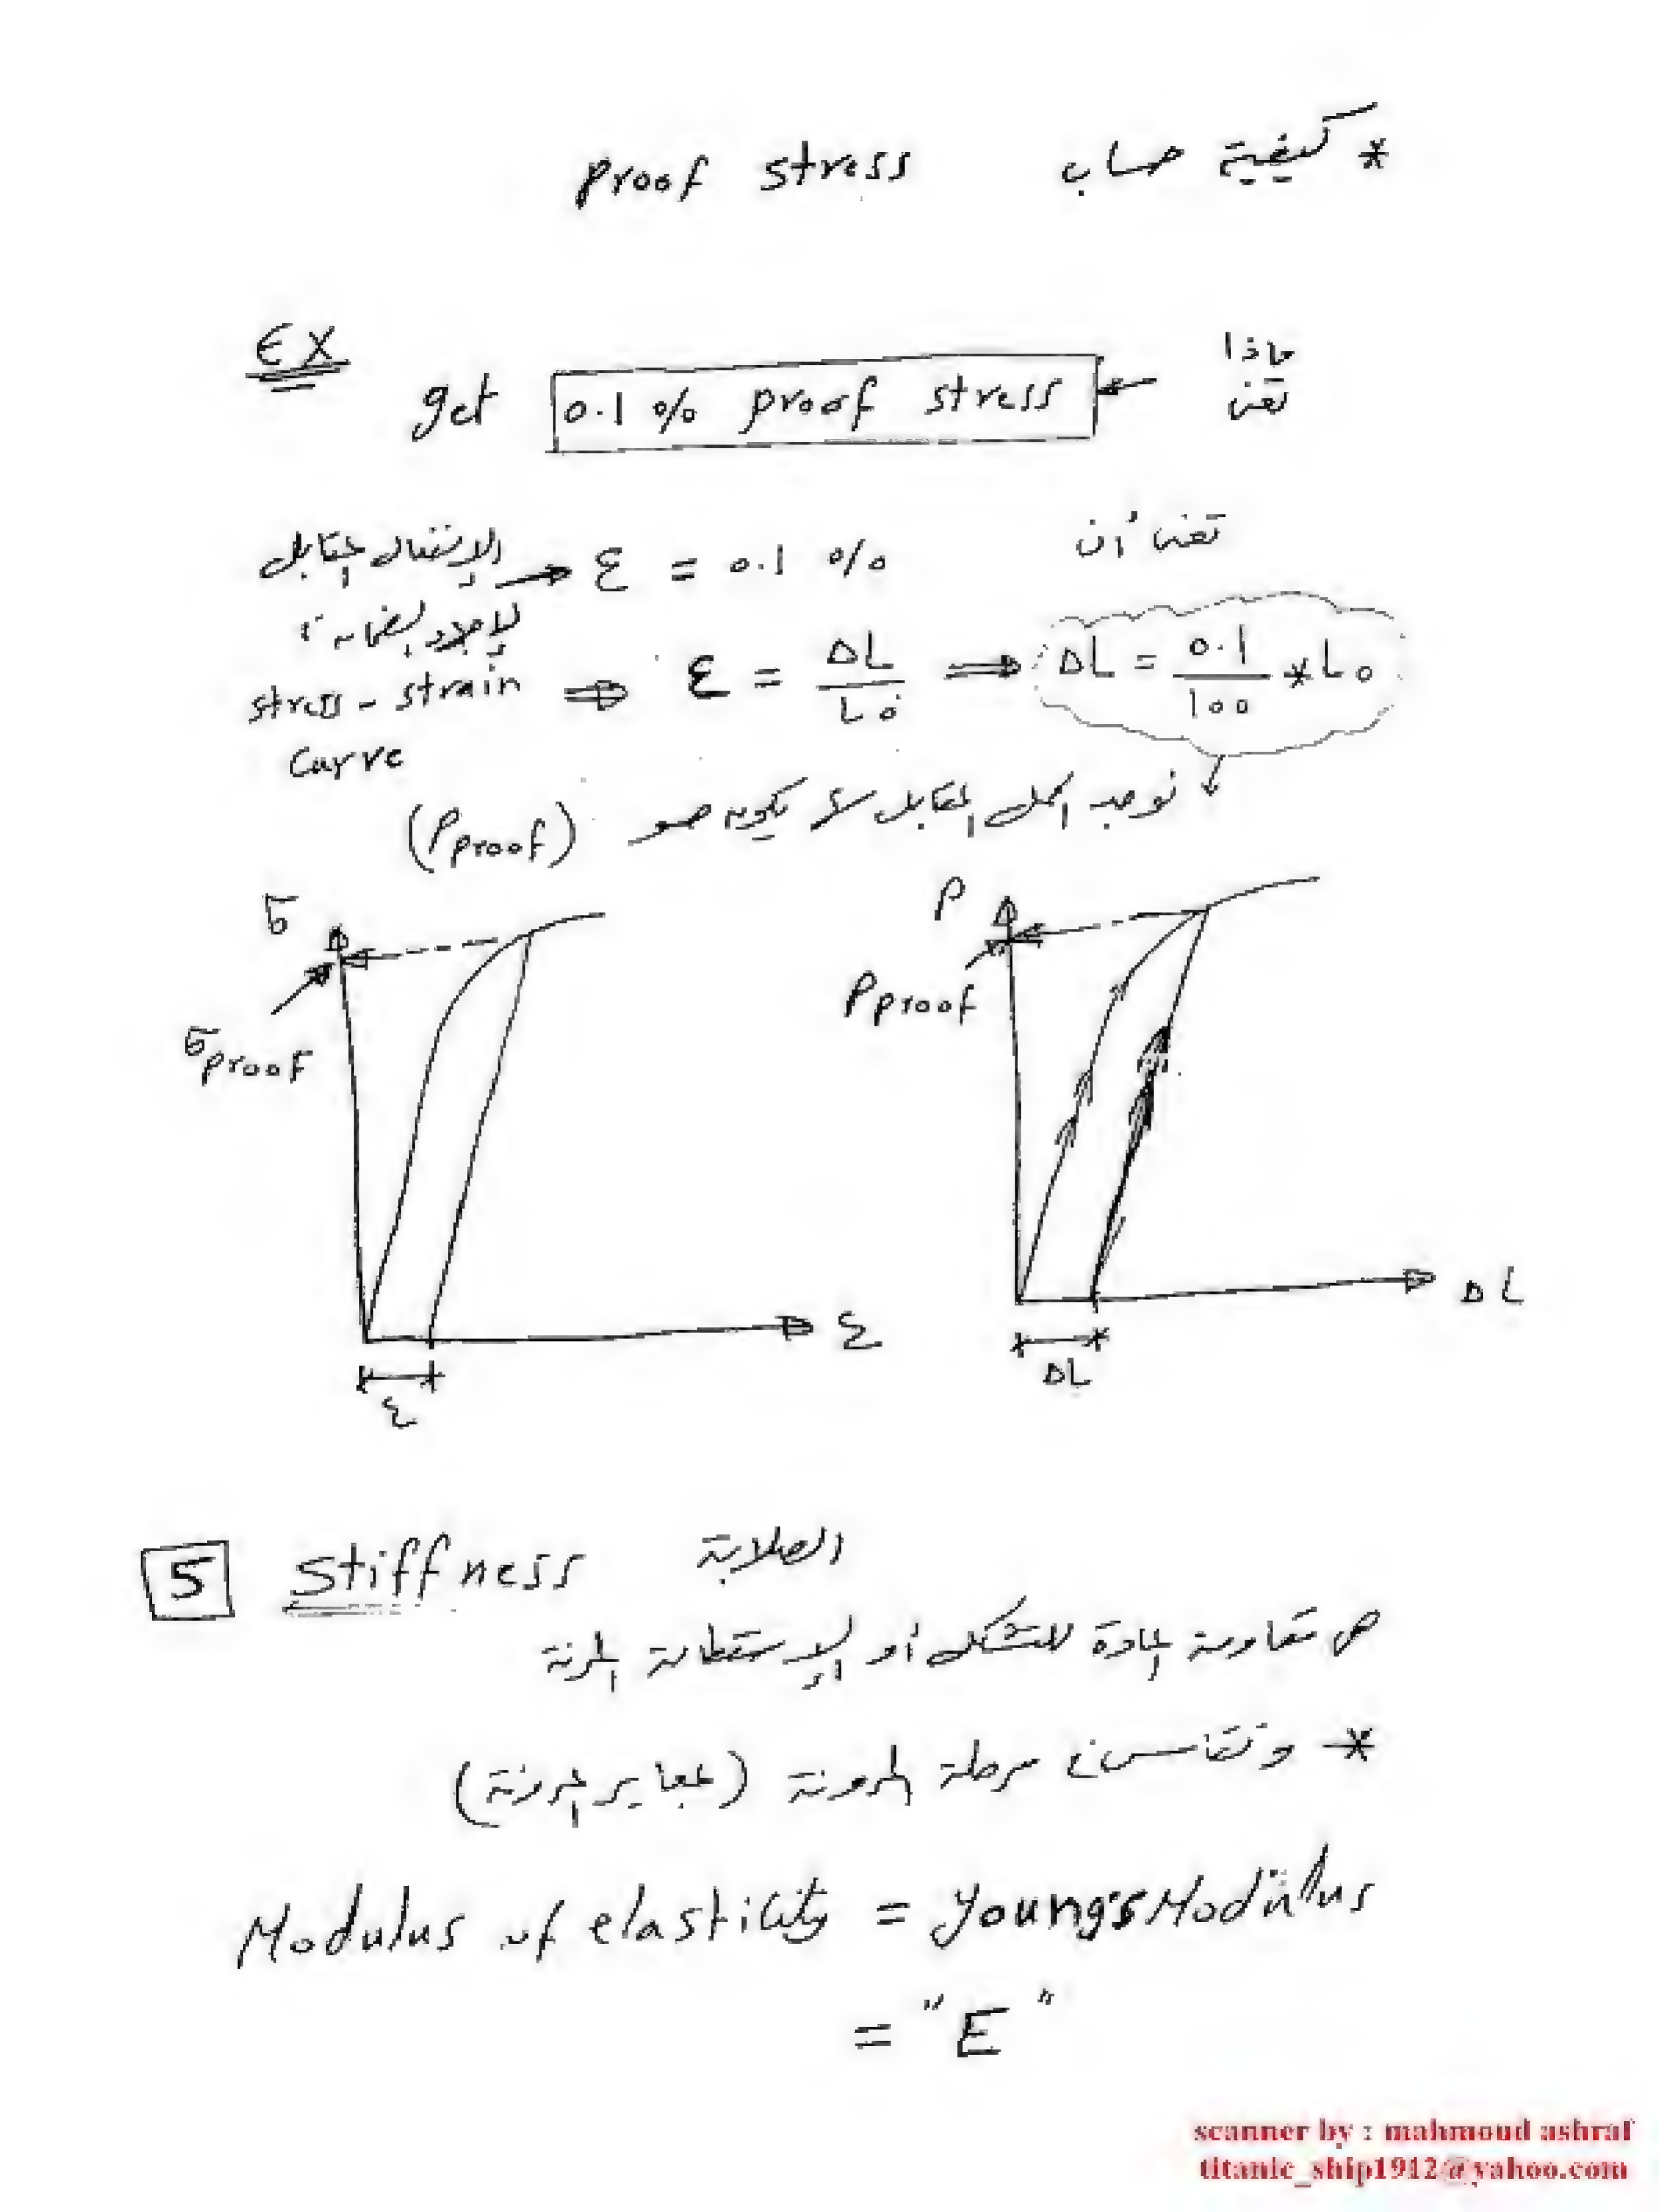 * كيفية حساب proof stress
EX
get 0.1 % proof stress ← ماذا
تعنى
تعنى أن
ε = 0.1 %
الإنفعال المقابل
لإجهاد الضمان
stress - strain ⇒ ε = ΔL / Lo ⇒ ΔL = 0.1 / 100 * Lo
curve
نوجد الحمل المقابل لها يكون هو (P proof)
σ
σ proof
ε
ε
P
P proof
ΔL
ΔL
5 Stiffness الصلابة
هى مقاومة المادة للتشكل أو الإستطالة المرنة
* وتقاس فى مرحلة المرونة (بمعاير المرونة)
Modulus of elasticity = young's Modulus
= "E"
scanner by : mahmoud ashraf
titanic_ship1912@yahoo.com